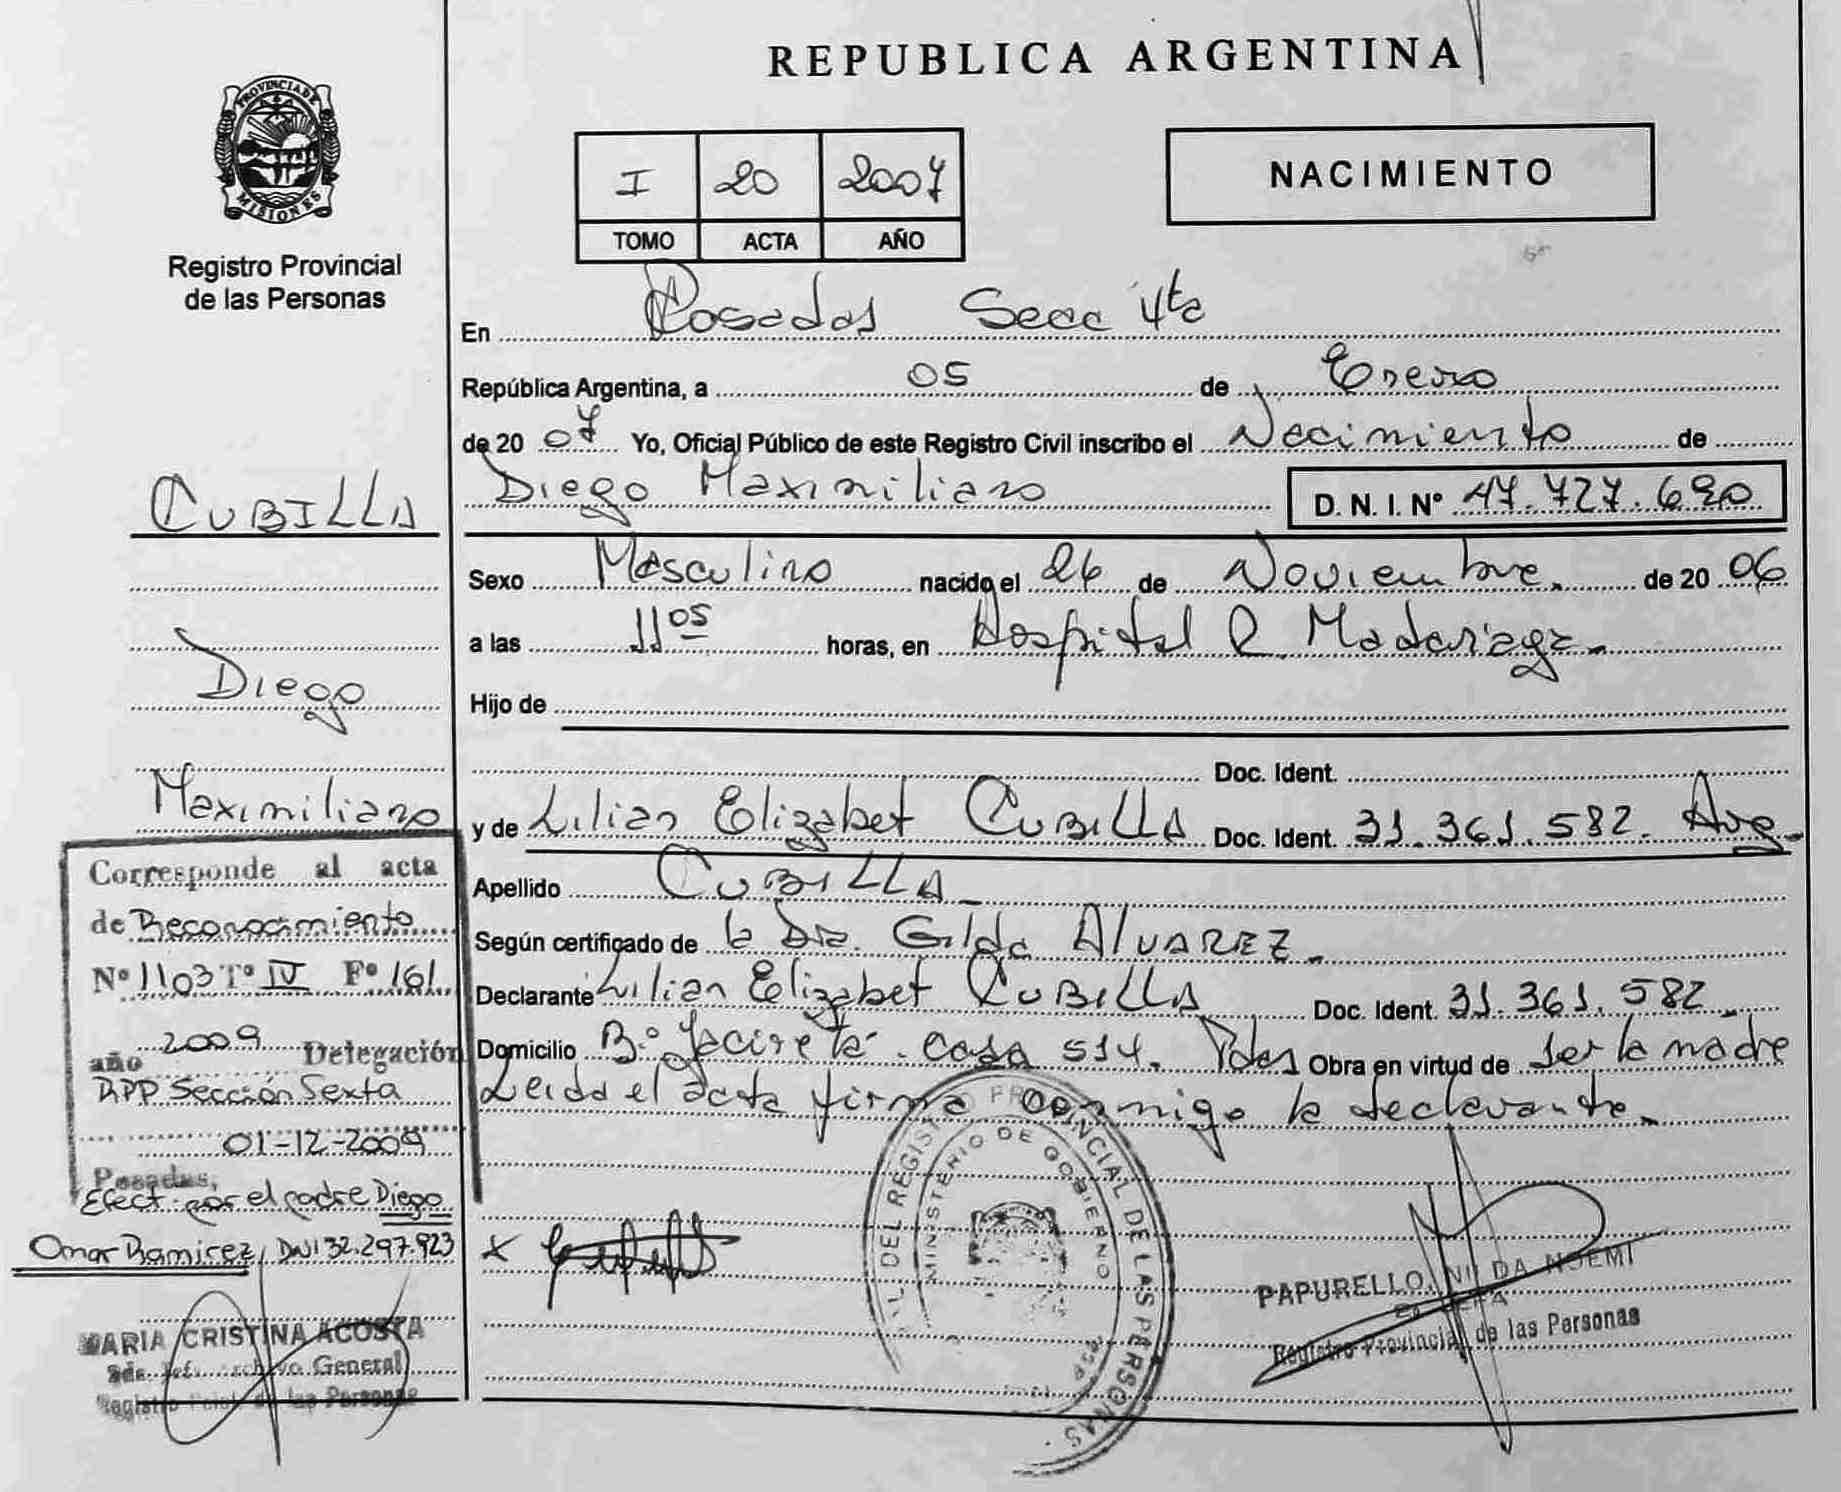 REPUBLICA ARGENTINA
PROVINCIA DE MISIONES
Registro Provincial
de las Personas
I 20 2007
TOMO ACTA AÑO
NACIMIENTO
En Posadas Secc 4ta
República Argentina, a 05 de Enero
de 20 07 Yo, Oficial Público de este Registro Civil inscribo el Nacimiento de
Diego Maximiliano D. N. I. Nº 47.727.690
Sexo Masculino nacido el 26 de Noviembre. de 20 06
a las 11 05 horas, en Hospital R. Madariaga.-
Hijo de
Doc. Ident.
y de Lilian Elizabet CUBILLA Doc. Ident. 31.361.582. Arg.-
Apellido CUBILLA.-
Según certificado de la Dra. Gilda ALVAREZ.-
Declarante Lilian Elizabet CUBILLA Doc. Ident. 31.361.582
Domicilio Bº Yacireta - casa 514. Pdas Obra en virtud de ser la madre
Leida el acta firma conmigo la declarante.-
CUBILLA
Diego
Maximiliano
Corresponde al acta
de Reconocimiento
Nº 1103 Tº IV Fº 161
año 2009 Delegación
RPP Sección Sexta
01-12-2009
Posadas,
Efect. por el padre Diego
Omar Ramirez, DNI 32.297.923
MARIA CRISTINA ACOSTA
Archivo General
Registro Pcial. de las Personas
X
L DEL REGISTRO PROVINCIAL DE LAS PERSONAS
MINISTERIO DE GOBIERNO
PAPURELLO, NILDA NOEMI
JEFA
Registro Provincial de las Personas